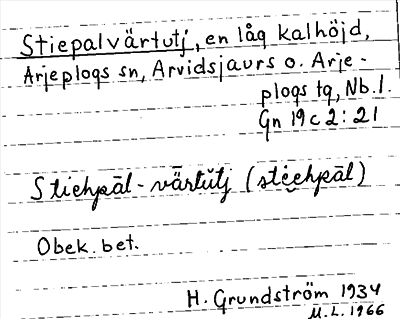 Stiepalvärtutj, en låg kalhöjd,
Arjeplogs sn, Arvidsjaurs o. Arje-
plogs tg, Nb. l.
Gn 19 c 2:21
Stiehpāl-värtutj (stiehpāl)
Obek. bet.
H. Grundström 1934
M.L. 1966